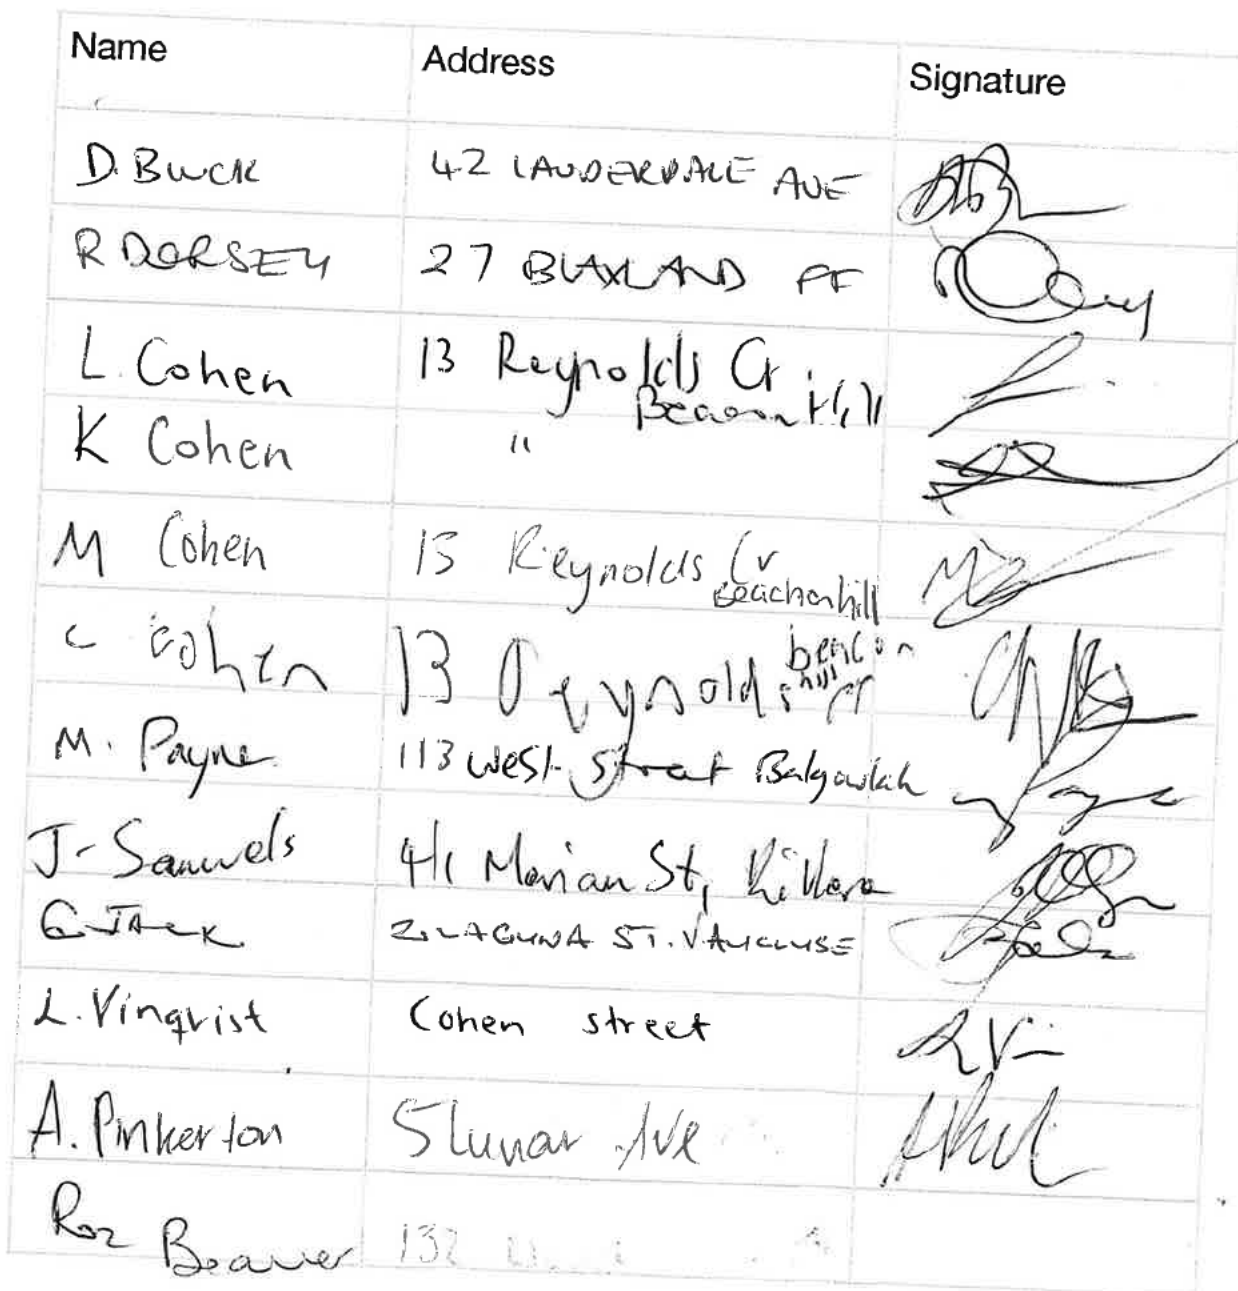 Name Address Signature
D. Buck 42 LAUDERDALE AVE
R DORSEY 27 BLAXLAND
L. Cohen 13 Reynolds Cr.
Beacon Hill
K Cohen "
M Cohen 13 Reynolds Cr
Beachonhill
c cohen 13 Reynolds beacon
hill cr
M. Payne 113 West Street Balgowlah
J. Samuels 4/1 Marian St, Killara
G JACK 2 LAGUNA ST. VAUCLUSE
L. Vinqvist Cohen street
A. Pinkerton 5 Lunar Ave
Roz Beaver 132